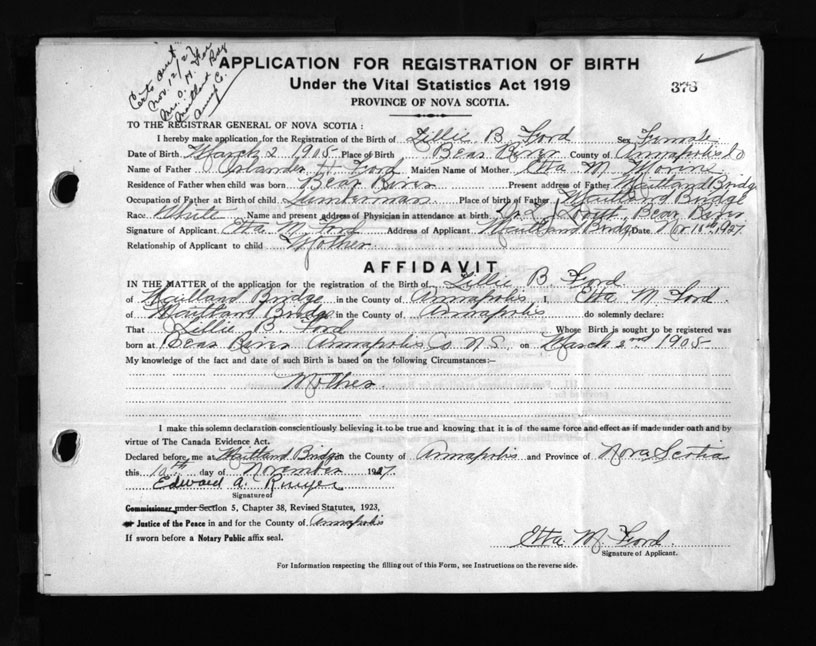 Certs sent
Nov. 12/27
Mrs. O. H.
Maitland Bdg
Annap C.
APPLICATION FOR REGISTRATION OF BIRTH
Under the Vital Statistics Act 1919
376
PROVINCE OF NOVA SCOTIA.
TO THE REGISTRAR GENERAL OF NOVA SCOTIA :
I hereby make application for the Registration of the Birth of Lillie B. Ford Sex Female
Date of Birth March 2 1905 Place of Birth Bear River County of Annapolis Co
Name of Father H. Ford Maiden Name of Mother Etta M. Morine
Residence of Father when child was born Bear River Present address of Father Maitland Bridge
Occupation of Father at Birth of child Lumberman Place of birth of Father Maitland Bridge
Race White Name and present address of Physician in attendance at birth Bear River
Signature of Applicant Etta M. Ford Address of Applicant Maitland Bridge Date Nov 10th 1927
Relationship of Applicant to child Mother
AFFIDAVIT
IN THE MATTER of the application for the registration of the Birth of Lillie B. Ford
of Maitland Bridge in the County of Annapolis I, Etta M. Ford
of Maitland Bridge in the County of Annapolis do solemnly declare:
That Lillie B. Ford Whose Birth is sought to be registered was
born at Bear River Annapolis Co. N.S. on March 2nd 1905
My knowledge of the fact and date of such Birth is based on the following Circumstances:—
Mother.
I make this solemn declaration conscientiously believing it to be true and knowing that it is of the same force and effect as if made under oath and by
virtue of The Canada Evidence Act.
Declared before me at Maitland Bridge in the County of Annapolis and Province of Nova Scotia
this 10th day of November 1927
Edward A.
Signature of
Commissioner under Section 5, Chapter 38, Revised Statutes, 1923,
or Justice of the Peace in and for the County of Annapolis
If sworn before a Notary Public affix seal.
Etta M. Ford.
Signature of Applicant.
For Information respecting the filling out of this Form, see Instructions on the reverse side.